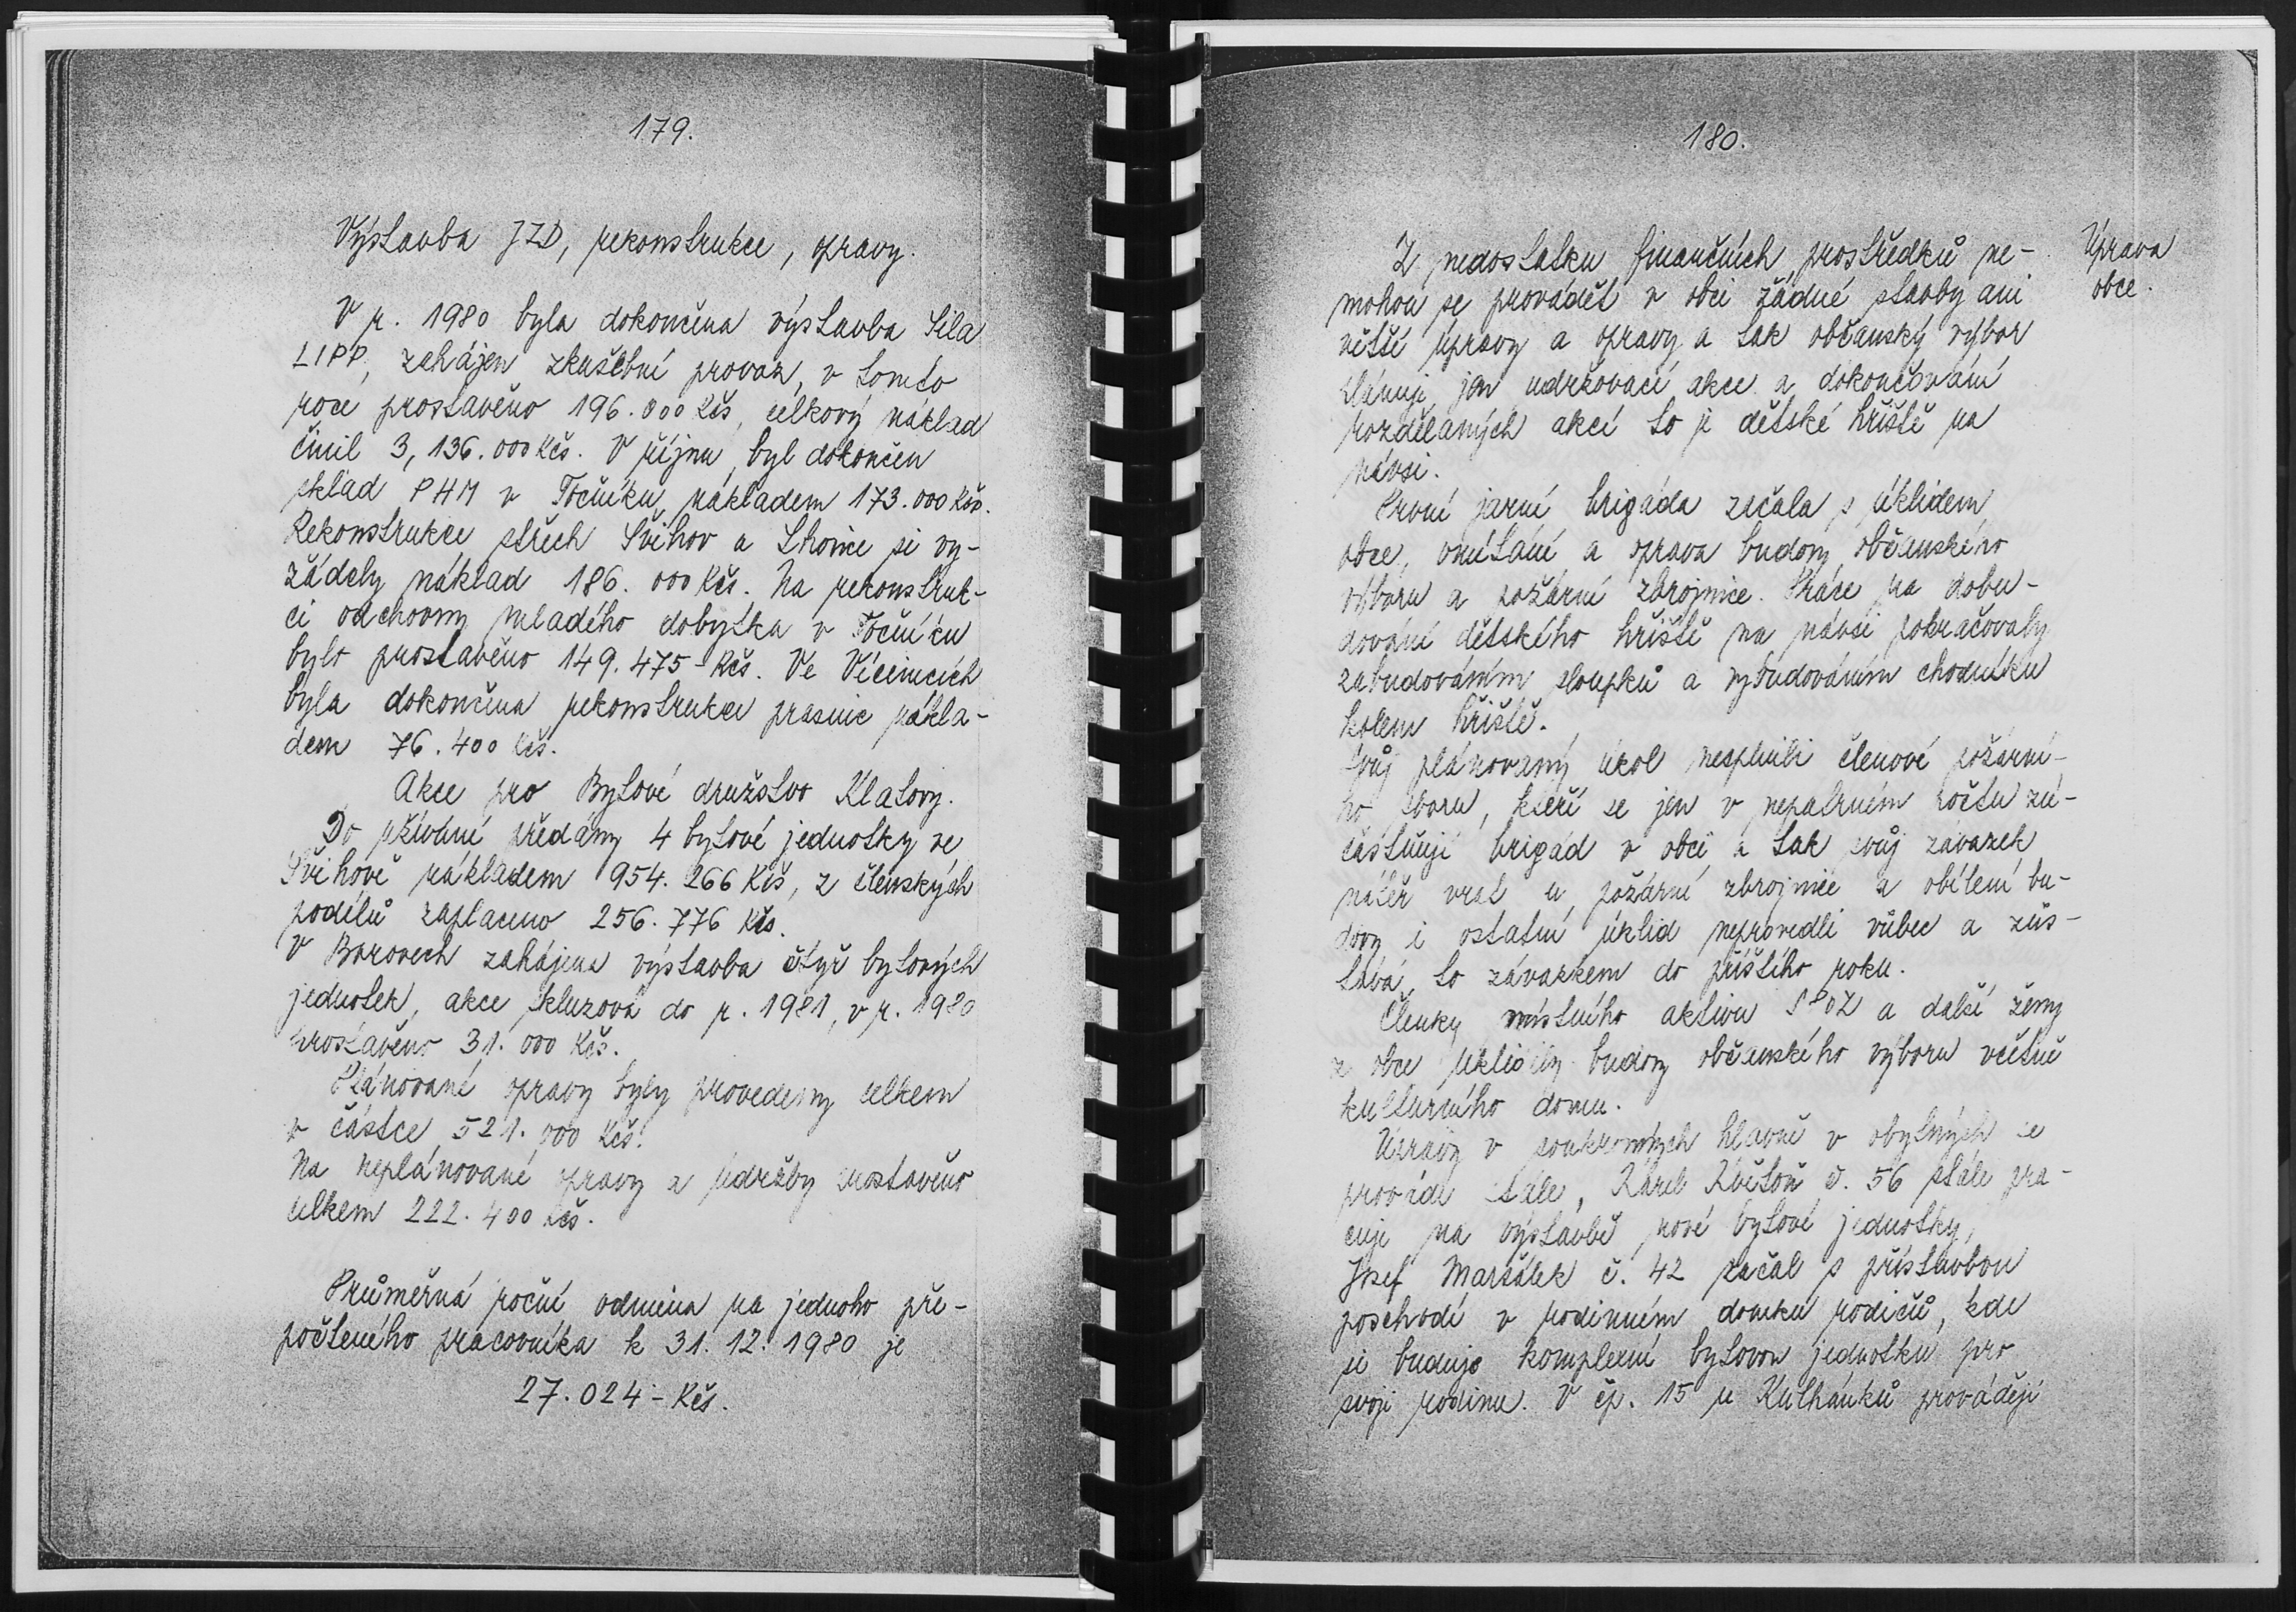 179.
Výstavba JZD, rekonstrukce, opravy.
V r. 1980 byla dokončena výstavba Sila
LIPP, zahájen zkušební provoz, v tomto
roce prostavěno 196.000 Kčs, celkový náklad
činil 3,136.000 Kčs. V říjnu byl dokončen
sklad PHM v Točníku nákladem 173.000 Kčs.
Rekonstrukce střech Švihov a Lhovice si vy-
žádaly náklad 186.000 Kčs. Na rekonstruk-
ci odchovny mladého dobytka v Točníku
bylo prostavěno 149.475 - Kčs. Ve Vícenicích
byla dokončena rekonstrukce prasnic nákla-
dem 76.400 Kčs.
Akce pro Bytové družstvo Klatovy.
Do užívání předány 4 bytové jednotky ve
Švihově nákladem 954.266 Kčs, z členských
podílů zaplaceno 256.776 Kčs.
V Borovech zahájena výstavba čtyř bytových
jednotek, akce skluzová do r. 1981, v r. 1980
prostavěno 31.000 Kčs.
Plánované opravy byly provedeny celkem
v částce 521.000 Kčs.
Na neplánované opravy a údržby prostavěno
celkem 222.400 Kčs.
Průměrná roční odměna na jednoho pře-
počteného pracovníka k 31. 12. 1980 je
27.024 - Kčs.
180.
Úprava
obce.
Z nedostatku finančních prostředků ne-
mohou se provádět v obci žádné stavby ani
větší úpravy a opravy a tak občanský výbor
plánuje jen udržovací akce a dokončování
rozdělaných akcí to je dětské hřiště na
návsi.
První jarní brigáda začala s úklidem
obce, omítání a oprava budovy občanského
výboru a požární zbrojnice. Práce na dobu-
dování dětského hřiště na návsi pokračovaly
zabudováním sloupků a vybudováním chodníku
kolem hřiště.
Svůj plánovaný úkol nesplnili členové požární-
ho sboru, kteří se jen v nepatrném počtu zú-
častňují brigád v obci a tak svůj závazek
nátěr vrat u požární zbrojnice a obílení bu-
dovy i ostatní úklid neprovedli vůbec a zůs-
tává to závazkem do příštího roku.
Členky místního aktivu SPOZ a další ženy
z obce uklidily budovy občanského výboru včetně
kulturního domu.
Úpravy v soukromých hlavně v obytných se
provádí stále, Karel Květoň č. 56 stále pra-
cuje na výstavbě nové bytové jednotky,
Josef Maršálek č. 42 začal s přístavbou
poschodí v rodinném domku rodičů, kde
si buduje komplexní bytovou jednotku pro
svoji rodinu. V čp. 15 u Kulhánků provádějí